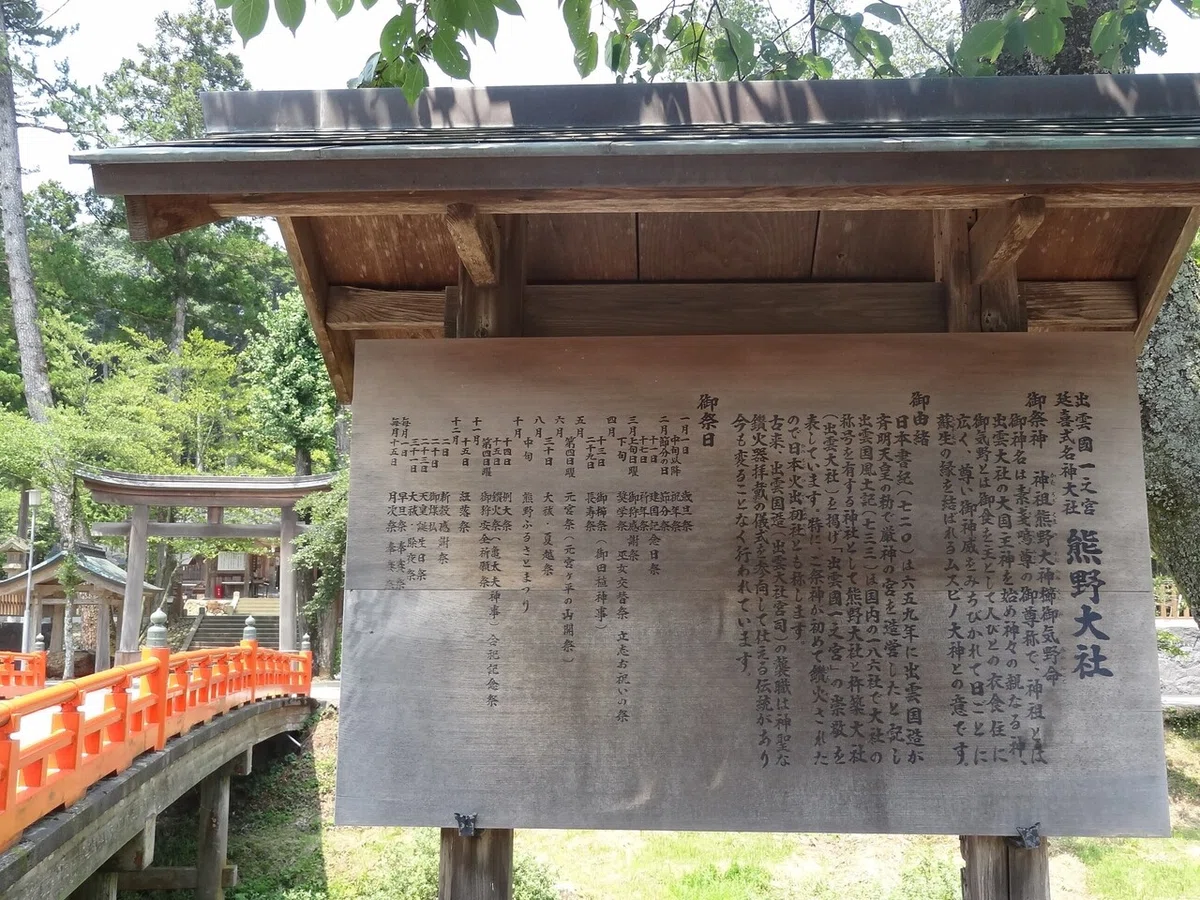 出雲國一之宮
延喜式名神大社
熊野大社
御祭神 神祖熊野大神櫛御気野命
御神名は素戔嗚尊の御尊称で、神祖とは
出雲大社の大国主神を始め神々の親なる神、
御気野とは御食を主として人びとの衣食住に
広く、尊い御神威をみちびかれて日ごとに
蘇生の縁を結ばれるムスビノ大神との意です。
御由緒
日本書紀(七二〇)は六五九年に出雲国造が
斉明天皇の勅で厳神の宮を造営したと記し
出雲国風土記(七三三)は国内の一八六社で大社の
称号を有する神社として熊野大社と杵築大社
(出雲大社)を掲げ「出雲国一之宮」の崇敬を
表しています。特にご祭神が初めて鑽火された
ので日本火出初社とも称します。
古来、出雲国造(出雲大社宮司)の襲職は神聖な
鑽火器拝戴の儀式を参向して仕える伝統があり
今も変ることなく行われています。
御祭日
一月一日 歳旦祭
中旬以降 祝年祭
二月節分の日 節分祭
十一日 建国記念日祭
十七日 祈年祭
三月上旬日曜 御狩感謝祭
下旬 奨学祭
四月十三日 御櫛祭(御田植神事)
二十九日 長寿祭
五月第四日曜 元宮祭(元宮ヶ平の山開祭)
六月三十日 大祓・夏越祭
八月中旬 熊野ふるさとまつり
十月十四日 例大祭
十五日 鑽火祭(亀太夫神事)
第四日曜 御狩安全祈願祭
十一月十五日
十二月
二十日 新穀感謝祭
二十三日 天皇誕生日祭
三十一日 大祓・除夜祭
毎月一日 早旦祭
毎月十五日 月次祭